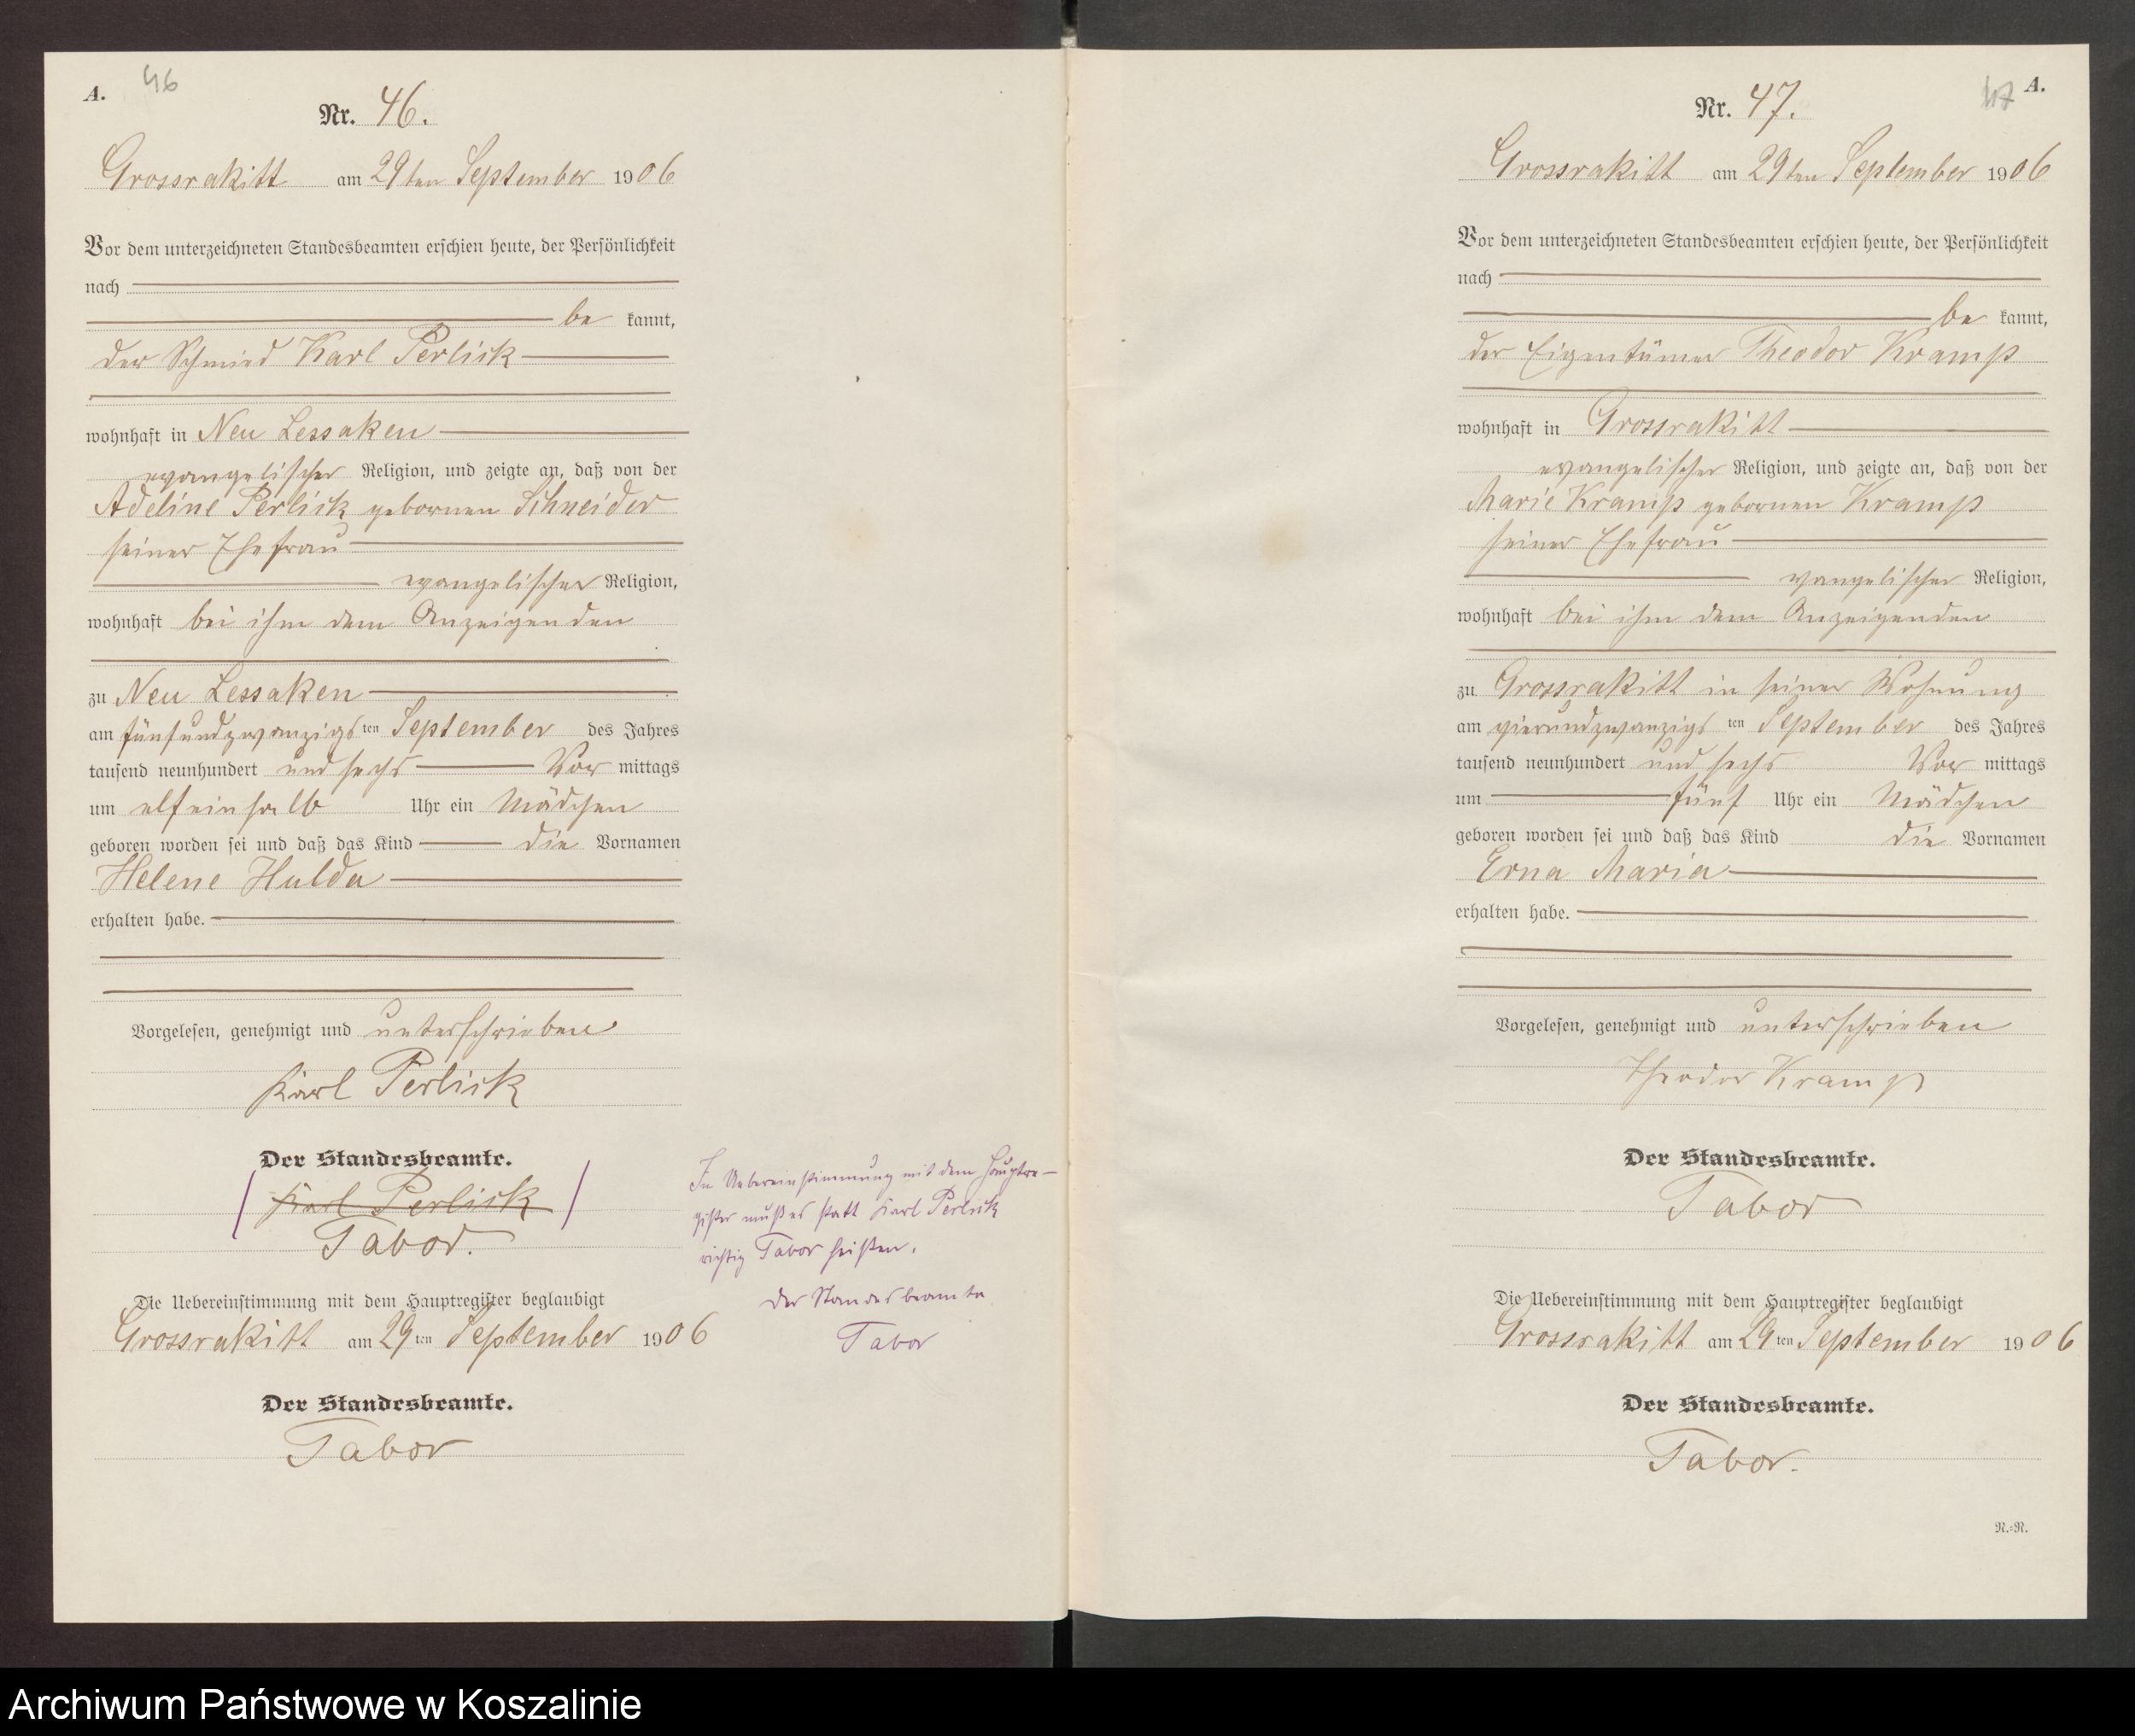 A. 46
Nr. 46.
Grossrakitt am 29ten September 1906
Vor dem unterzeichneten Standesbeamten erschien heute, der Persönlichkeit
nach
be kannt,
der Schmied Karl Perlick
wohnhaft in Neu Lessaken
evangelischer Religion, und zeigte an, daß von der
Adeline Perlick gebornen Schneider
seiner Ehefrau
evangelischer Religion,
wohnhaft bei ihm dem Anzeigenden
zu Neu Lessaken
am fünfundzwanzigsten September des Jahres
tausend neunhundert und sechs Vor mittags
um elfeinhalb Uhr ein Mädchen
geboren worden sei und daß das Kind die Vornamen
Helene Hulda
erhalten habe.
Vorgelesen, genehmigt und unterschrieben
Karl Perlick
Der Standesbeamte.
Karl Perlick
Tabor.
Die Uebereinstimmung mit dem Hauptregister beglaubigt
Grossrakitt am 29ten September 1906
Der Standesbeamte.
Tabor
In Uebereinstimmung mit dem Hauptre-
gister muß es statt Karl Perlick
richtig Tabor heißen.
Der Standesbeamte
Tabor
47 A.
Nr. 47.
Grossrakitt am 29ten September 1906
Vor dem unterzeichneten Standesbeamten erschien heute, der Persönlichkeit
nach
be kannt,
der Eigentümer Theodor Kramp
wohnhaft in Grossrakitt
evangelischer Religion, und zeigte an, daß von der
Marie Kramp gebornen Kramp
seiner Ehefrau
evangelischer Religion,
wohnhaft bei ihm dem Anzeigenden
zu Grossrakitt in seiner Wohnung
am vierundzwanzigsten September des Jahres
tausend neunhundert und sechs Vor mittags
um fünf Uhr ein Mädchen
geboren worden sei und daß das Kind die Vornamen
Erna Maria
erhalten habe.
Vorgelesen, genehmigt und unterschrieben
Theodor Kramp
Der Standesbeamte.
Tabor
Die Uebereinstimmung mit dem Hauptregister beglaubigt
Grossrakitt am 29ten September 1906
Der Standesbeamte.
Tabor.
N.-N.
Archiwum Państwowe w Koszalinie